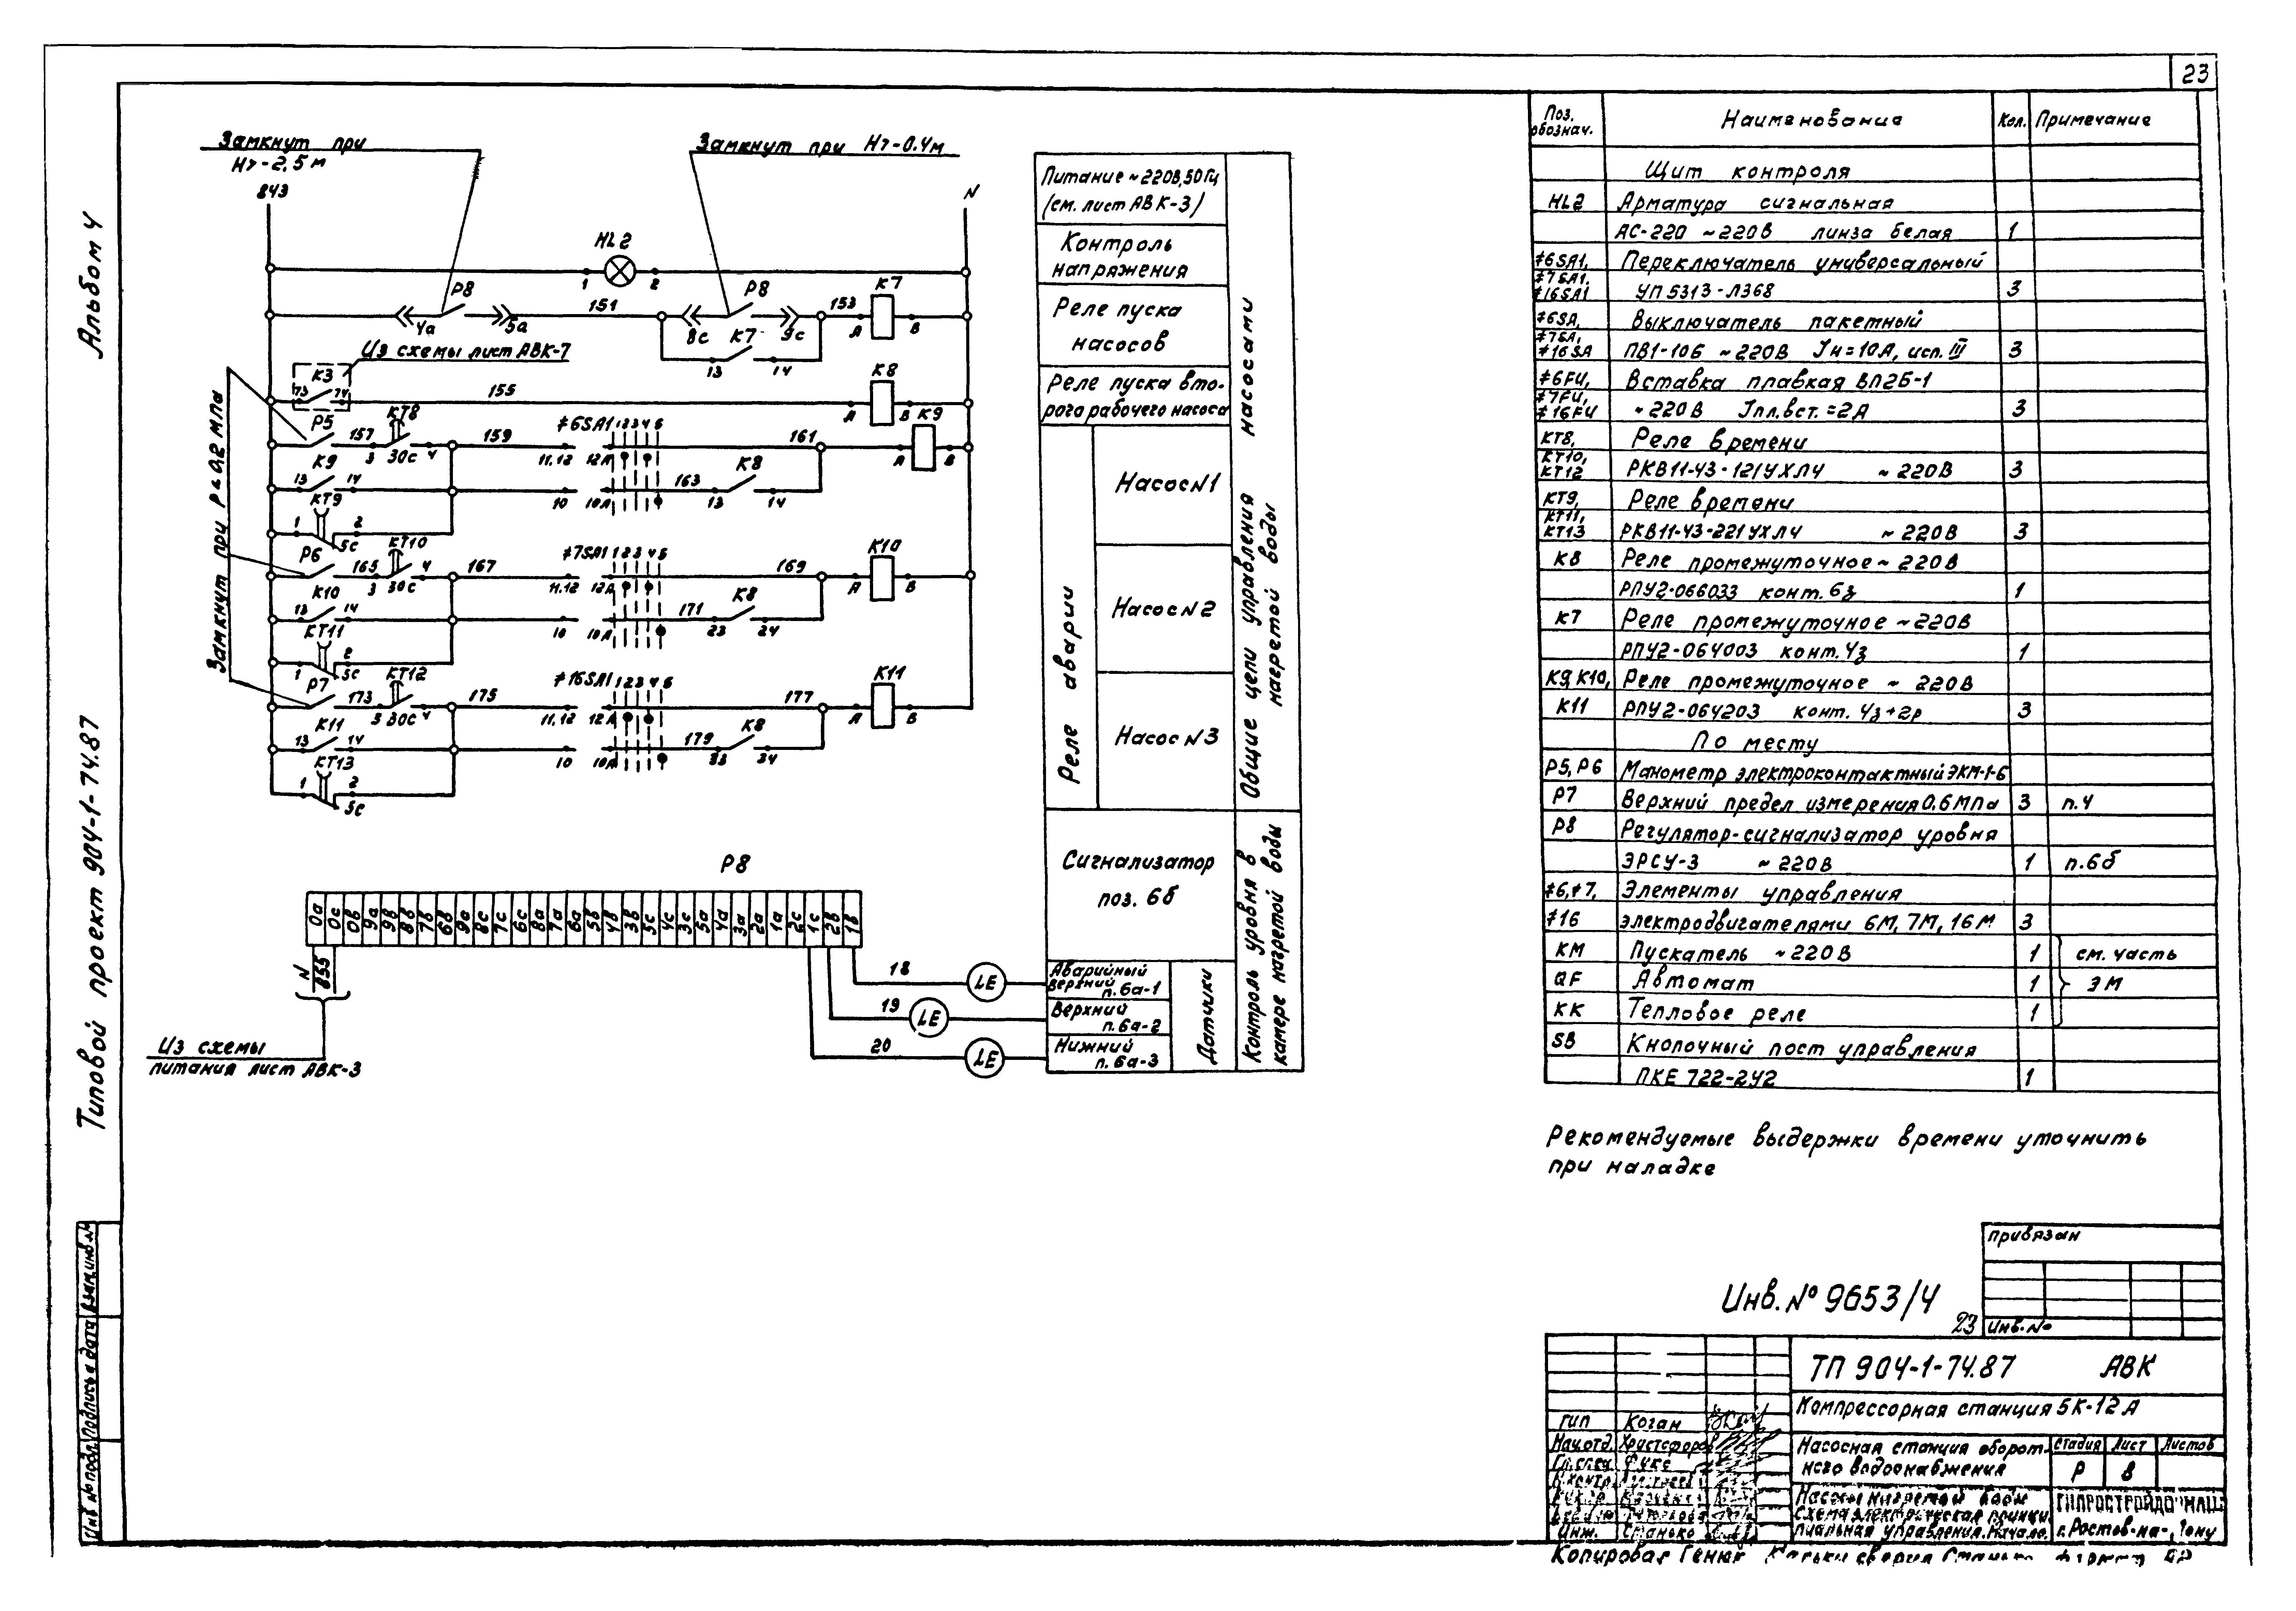 23
Альбом 4
Типовой проект 904-1-74.87
Замкнут при
Н>-2,5м
843
Замкнут при Н>-0.4м
N
HL2
1 2
P8 P8 K7
4а 5а 151 8с 9с 153 А В
K7
13 14
Из схемы лист АВК-7
K3
73 74 155
K8
А В
Замкнут при Р≤0,2 МПа
P5 157 КТ8 159 #6SA1 1 2 3 4 5 161 K9
3 30с 4 11,12 12А А В
K9 K8
13 14 10 10А 163 13 14
КТ9
1 2
5с
P6 165 КТ10 167 #7SA1 1 2 3 4 5 169 K10
3 30с 4 11,12 12А А В
K10 K8
13 14 10 10А 171 23 24
КТ11
1 2
5с
P7 173 КТ12 175 #16SA1 1 2 3 4 5 177 K11
3 30с 4 11,12 12А А В
K11 K8
13 14 10 10А 179 33 34
КТ13
1 2
5с
Питание ~220В,50Гц
(см. лист АВК-3)
Контроль
напряжения
Реле пуска
насосов
Реле пуска вто-
рого рабочего насоса
Реле аварии
Насос N1
Насос N2
Насос N3
Общие цепи управления насосами
нагретой воды
Сигнализатор
поз. 6б
Аварийный
верхний
п.6а-1
Верхний
п.6а-2
Нижний
п.6а-3
Датчики
Контроль уровня в
камере нагретой воды
P8
0а 0с 0в 9а 9в 8в 7в 6в 9а 8с 7с 6с 8а 7а 6а 5в 4в 3в 5с 4с 3с 5а 4а 3а 2а 1а 2с 1с 2в 1в
N 855
18 LE
19 LE
20 LE
Из схемы
питания лист АВК-3
Поз. обознач. Наименование Кол. Примечание
Щит контроля
HL2 Арматура сигнальная
АС-220 ~220В линза белая 1
#6SA1, Переключатель универсальный
#7SA1,
#16SA1 УП5313-Л368 3
#6SA, Выключатель пакетный
#7SA,
#16SA ПВ1-10Б ~220В Iн=10А, исп. III 3
#6FU, Вставка плавкая ВП2Б-1
#7FU,
#16FU ~220В Iпл.вст.=2А 3
КТ8, Реле времени
КТ10,
КТ12 РКВ11-43-121УХЛ4 ~220В 3
КТ9, Реле времени
КТ11,
КТ13 РКВ11-43-221УХЛ4 ~220В 3
K8 Реле промежуточное ~220В
РПУ2-066033 конт. 6з 1
K7 Реле промежуточное ~220В
РПУ2-064003 конт. 4з 1
K9, K10, Реле промежуточное ~ 220В
K11 РПУ2-064203 конт. 4з+2р 3
По месту
P5, P6 Манометр электроконтактный ЭКМ-1-6
P7 Верхний предел измерения 0.6МПа 3 п.4
P8 Регулятор-сигнализатор уровня
ЭРСУ-3 ~220В 1 п.6б
#6,#7, Элементы управления
#16 электродвигателями 6М, 7М, 16М 3
КМ Пускатель ~220В 1 см. часть
QF Автомат 1 ЭМ
КК Тепловое реле 1
SB Кнопочный пост управления
ПКЕ 722-2У2 1
Рекомендуемые выдержки времени уточнить
при наладке
Привязан
Инв. №
Инв. № 9653/4
23
ТП 904-1-74.87 АВК
Компрессорная станция 5К-12А
Насосная станция оборот-
ного водоснабжения
Стадия Лист Листов
Р 8
Насосы нагретой воды
Схема электрическая принци-
пиальная управления. Начало.
г.Ростов-на-Дону
ГИП Коган
Нач.отд. Христофоров
Гл.спец. Фукс
Инж. Станько
Инв № подл. Подпись и дата Взам.инв.№
Копировал Генюк